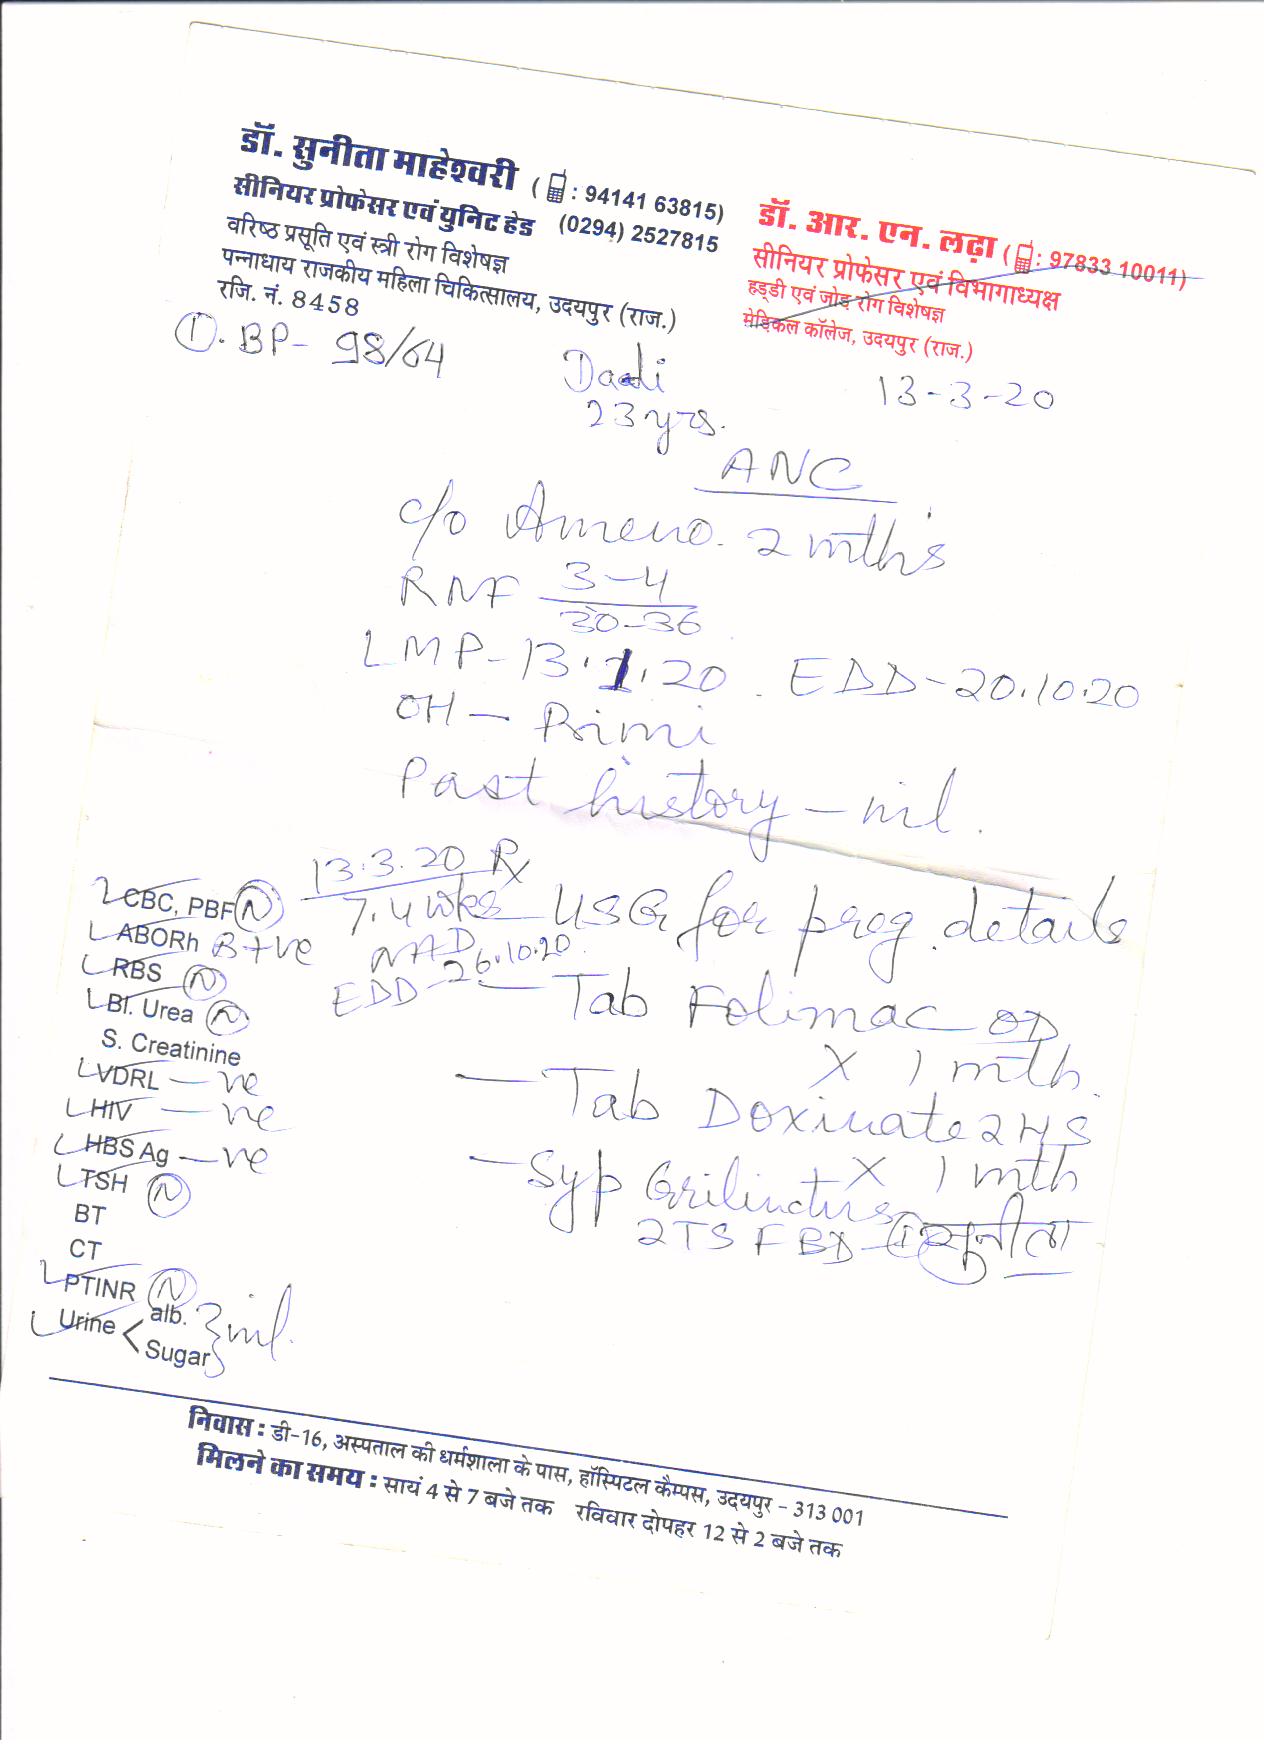 डॉ. सुनीता माहेश्वरी ( : 94141 63815)
सीनियर प्रोफेसर एवं युनिट हेड (0294) 2527815
वरिष्ठ प्रसूति एवं स्त्री रोग विशेषज्ञ
पन्नाधाय राजकीय महिला चिकित्सालय, उदयपुर (राज.)
रजि. नं. 8458
डॉ. आर. एन. लढ़ा ( : 97833 10011)
सीनियर प्रोफेसर एवं विभागाध्यक्ष
हड्डी एवं जोड़ रोग विशेषज्ञ
मेडिकल कॉलेज, उदयपुर (राज.)
①. BP- 98/64
23 yrs.
13-3-20
ANC
c/o Ameno. 2 mths
RMF 3-4
30-36
LMP-13.1.20. EDD-20.10.20
OH - Primi
Past history - nil.
13.3.20 Rx
7.4 wks
NAD
EDD-26.10.20
- USG for preg. details
- Tab Folimac OD
X 1 mth.
- Tab Doxinate 2 HS
X 1 mth
- Syp
2TSF BD
सुनीता
CBC, PBF (N)
ABORh B+ve
RBS (N)
Bl. Urea (N)
S. Creatinine
VDRL -ve
HIV -ve
HBS Ag -ve
TSH (N)
BT
CT
PTINR (N)
Urine < alb.
Sugar } nil.
निवास : डी-16, अस्पताल की धर्मशाला के पास, हॉस्पिटल कैम्पस, उदयपुर - 313 001
मिलने का समय : सायं 4 से 7 बजे तक रविवार दोपहर 12 से 2 बजे तक